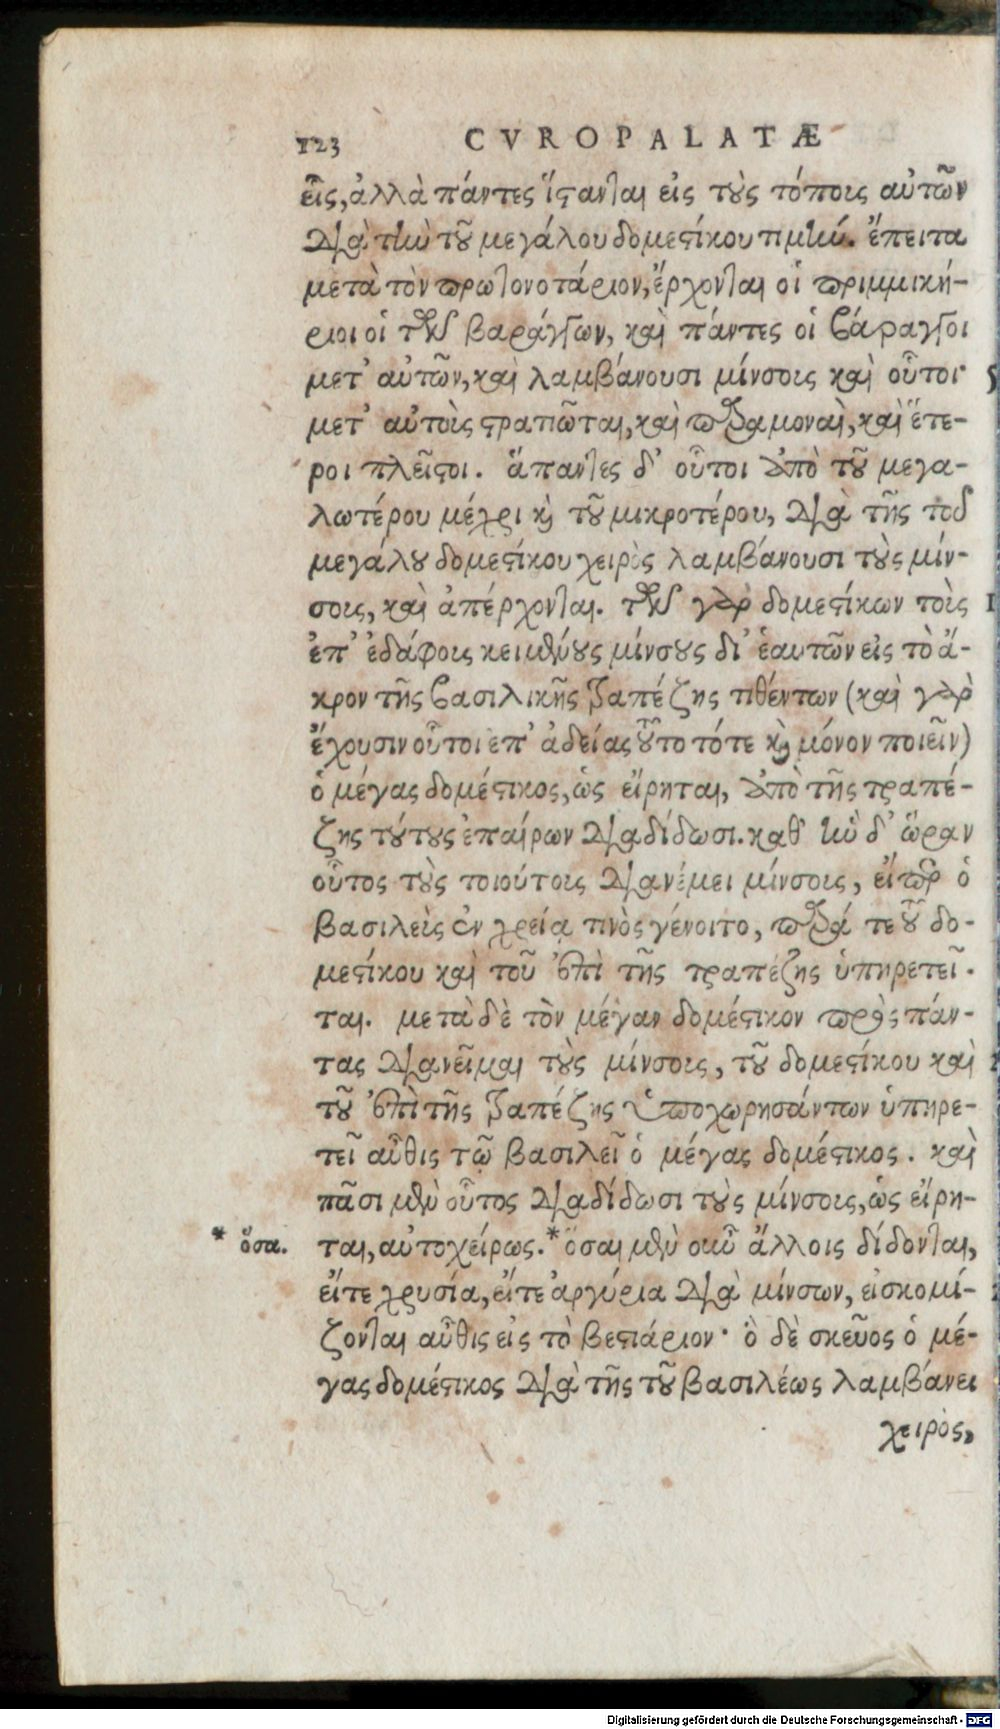 123 CVROPALATÆ
εῖς, ἀλλὰ πάντες ἵστανται εἰς τοὺς τόποις αὐτῶν
διὰ τὴν τοῦ μεγάλου δομεστίκου τιμήν. ἔπειτα
μετὰ τὸν πρωτονοτάριον, ἔρχονται οἱ πριμμική-
ριοι οἱ τῶν βαράγγων, καὶ πάντες οἱ βάραγγοι
μετ' αὐτῶν, καὶ λαμβάνουσι μίνσοις καὶ οὗτοι· 5
μετ' αὐτοὶς στρατιῶται, καὶ παραμοναὶ, καὶ ἕτε-
ροι πλεῖστοι. ἅπαντες δ' οὗτοι ἀπὸ τοῦ μεγα-
λωτέρου μέχρι καὶ τοῦ μικροτέρου, διὰ τῆς τοῦ
μεγάλου δομεστίκου χειρὸς λαμβάνουσι τοὺς μίν-
σοις, καὶ ἀπέρχονται. τῶν γὰρ δομεστίκων τοὶς 1
ἐπ' ἐδάφοις κειμένους μίνσους δι' ἑαυτῶν εἰς τὸ ἄ-
κρον τῆς βασιλικῆς τραπέζης τιθέντων (καὶ γὰρ
ἔχουσιν οὗτοι ἐπ' ἀδείας τοῦτο τότε καὶ μόνον ποιεῖν)
ὁ μέγας δομέστικος, ὡς εἴρηται, ἀπὸ τῆς τραπέ-
ζης τούτους ἐπαίρων διαδίδωσι. καθ' ἣν δ' ὥραν
οὗτος τοὺς τοιούτοις διανέμει μίνσοις, εἴπερ ὁ
βασιλεὶς ἐν χρείᾳ τινὸς γένοιτο, παρά τε τοῦ δο-
μεστίκου καὶ τοῦ ἐπὶ τῆς τραπέζης ὑπηρετεῖ-
ται. μετὰ δὲ τὸν μέγαν δομέστικον πρὸς πάν-
τας διανεῖμαι τοὺς μίνσοις, τοῦ δομεστίκου καὶ
τοῦ ἐπὶ τῆς τραπέζης ὑποχωρησάντων ὑπηρε-
τεῖ αὖθις τῷ βασιλεῖ ὁ μέγας δομέστικος. καὶ
πᾶσι μὲν οὗτος διαδίδωσι τοὺς μίνσοις, ὡς εἴρη-
* ὅσα. ται, αὐτοχείρως. * ὅσαι μὲν οὖν ἄλλοις δίδονται,
εἴτε χρυσία, εἴτε ἀργύρια διὰ μίνσων, εἰσκομί-
ζονται αὖθις εἰς τὸ βεστιάριον· ὃ δὲ σκεῦος ὁ μέ-
γας δομέστικος διὰ τῆς τοῦ βασιλέως λαμβάνει
χειρὸς,
Digitalisierung gefördert durch die Deutsche Forschungsgemeinschaft - DFG